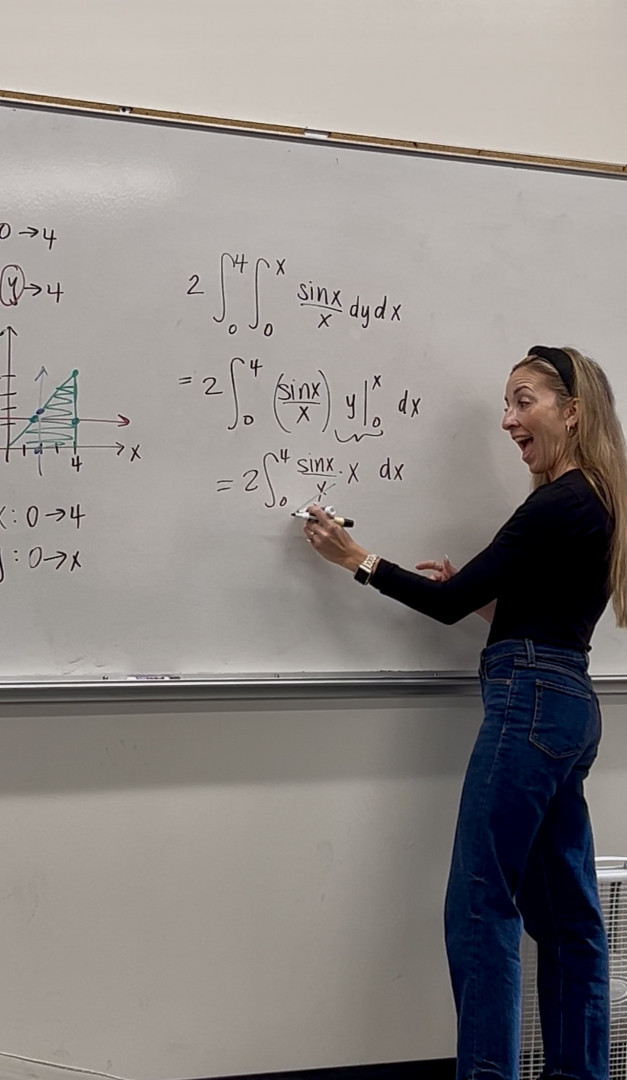 0→4
y→4
x
4
x: 0→4
y: 0→x
2 ∫₀⁴ ∫₀ˣ sinx/x dydx
= 2 ∫₀⁴ (sinx/x) y|₀ˣ dx
= 2 ∫₀⁴ sinx/x · x dx